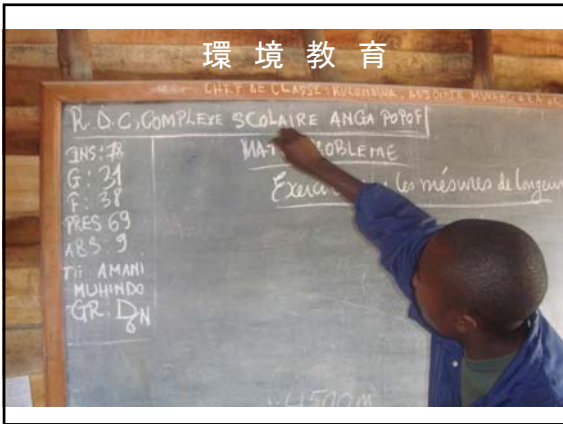 環境教育
CHEF DE CLASSE: KULONDWA, ADJOINTE
R.D.C, COMPLEXE SCOLAIRE ANGA POPOF
INS: 78
G: 31
F: 38
PRES 69
ABS: 9
Tit: AMANI
MUHINDO
GR: D6N
MAT OBLEME
Exerc les mésures de longeur
4500m